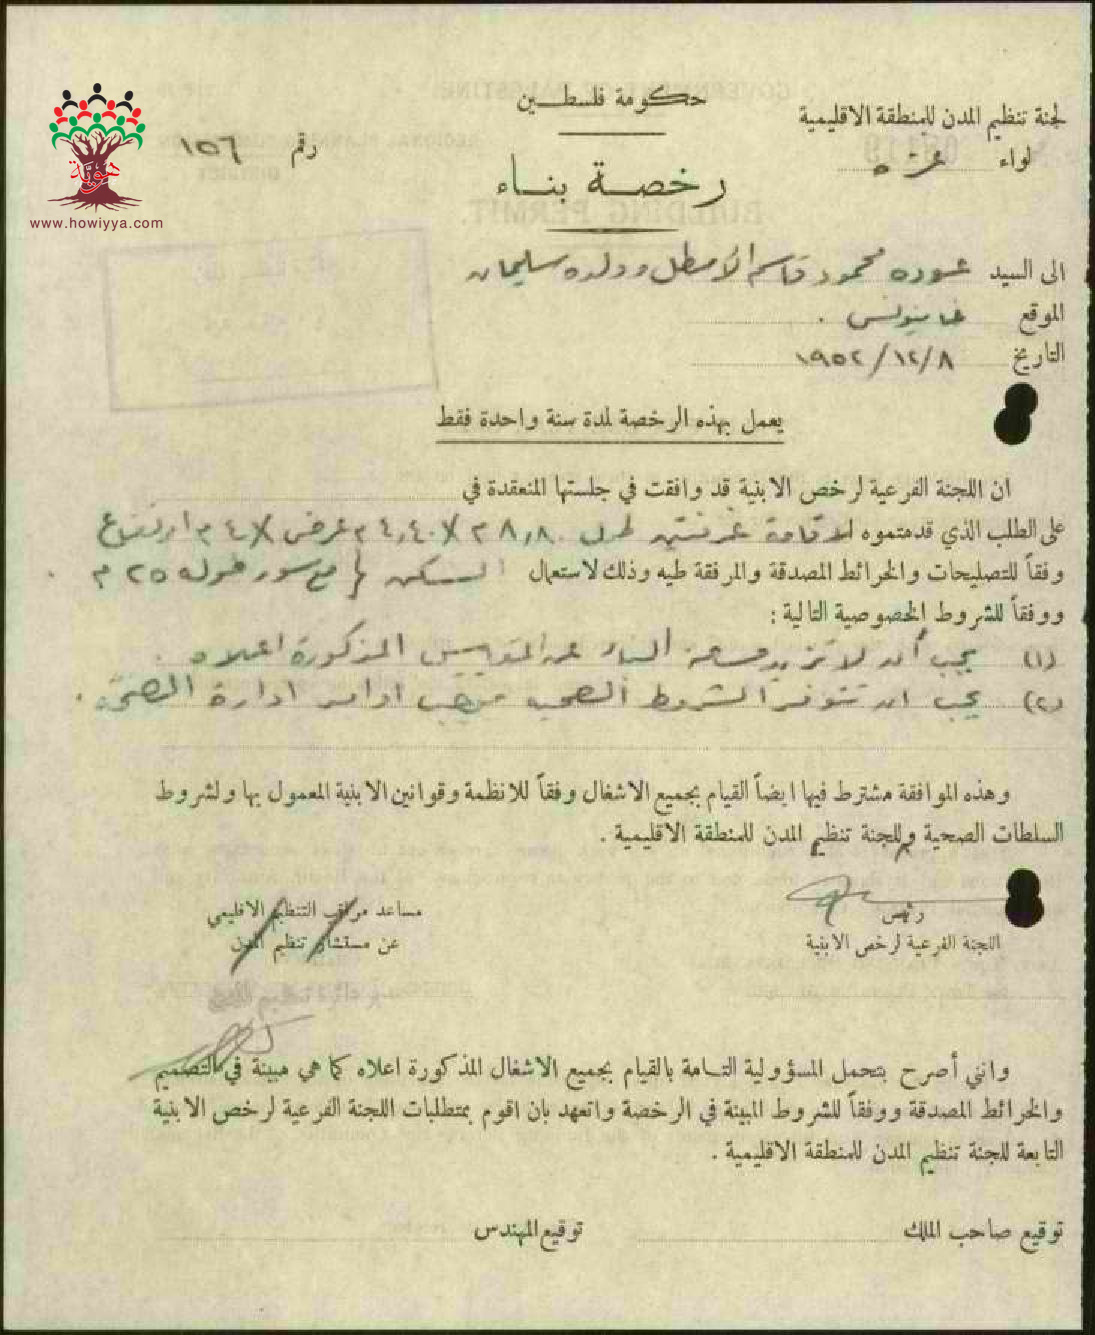 حكومة فلسطين
لجنة تنظيم المدن للمنطقة الاقليمية
لواء غزة
رقم ١٥٦
هوية
www.howiyya.com
رخصة بناء
الى السيد عوده محمود قاسم الاسطل وولده سليمان
الموقع خانيونس .
التاريخ ١٩٥٢/١٢/٨
يعمل بهذه الرخصة لمدة سنة واحدة فقط
ان اللجنة الفرعية لرخص الابنية قد وافقت في جلستها المنعقدة في
على الطلب الذي قدمتموه لاقامة غرفتين طول ٨,٨٠ م X ٤,٤٠ م عرض X ٤ م ارتفاع
وفقاً للتصليحات والخرائط المصدقة والمرفقة طيه وذلك لاستعمال السكن مع سور طوله ٢٥ م .
ووفقاً للشروط الخصوصية التالية :
(١) يجب أن لا تزيد مساحة البناء عن المقاييس المذكورة اعلاه .
(٢) يجب ان تتوفر الشروط الصحية بموجب اوامر ادارة الصحة .
وهذه الموافقة مشترط فيها ايضاً القيام بجميع الاشغال وفقاً للانظمة وقوانين الابنية المعمول بها ولشروط
السلطات الصحية وللجنة تنظيم المدن للمنطقة الاقليمية .
رئيس
اللجنة الفرعية لرخص الابنية
مساعد مراقب التنظيم الاقليمي
عن مستشار تنظيم المدن
دائرة تنظيم المدن
وانني أصرح بتحمل المسؤولية التامة بالقيام بجميع الاشغال المذكورة اعلاه كما هي مبينة في التصميم
والخرائط المصدقة ووفقاً للشروط المبينة في الرخصة واتعهد بان اقوم بمتطلبات اللجنة الفرعية لرخص الابنية
التابعة للجنة تنظيم المدن للمنطقة الاقليمية .
توقيع صاحب الملك
توقيع المهندس